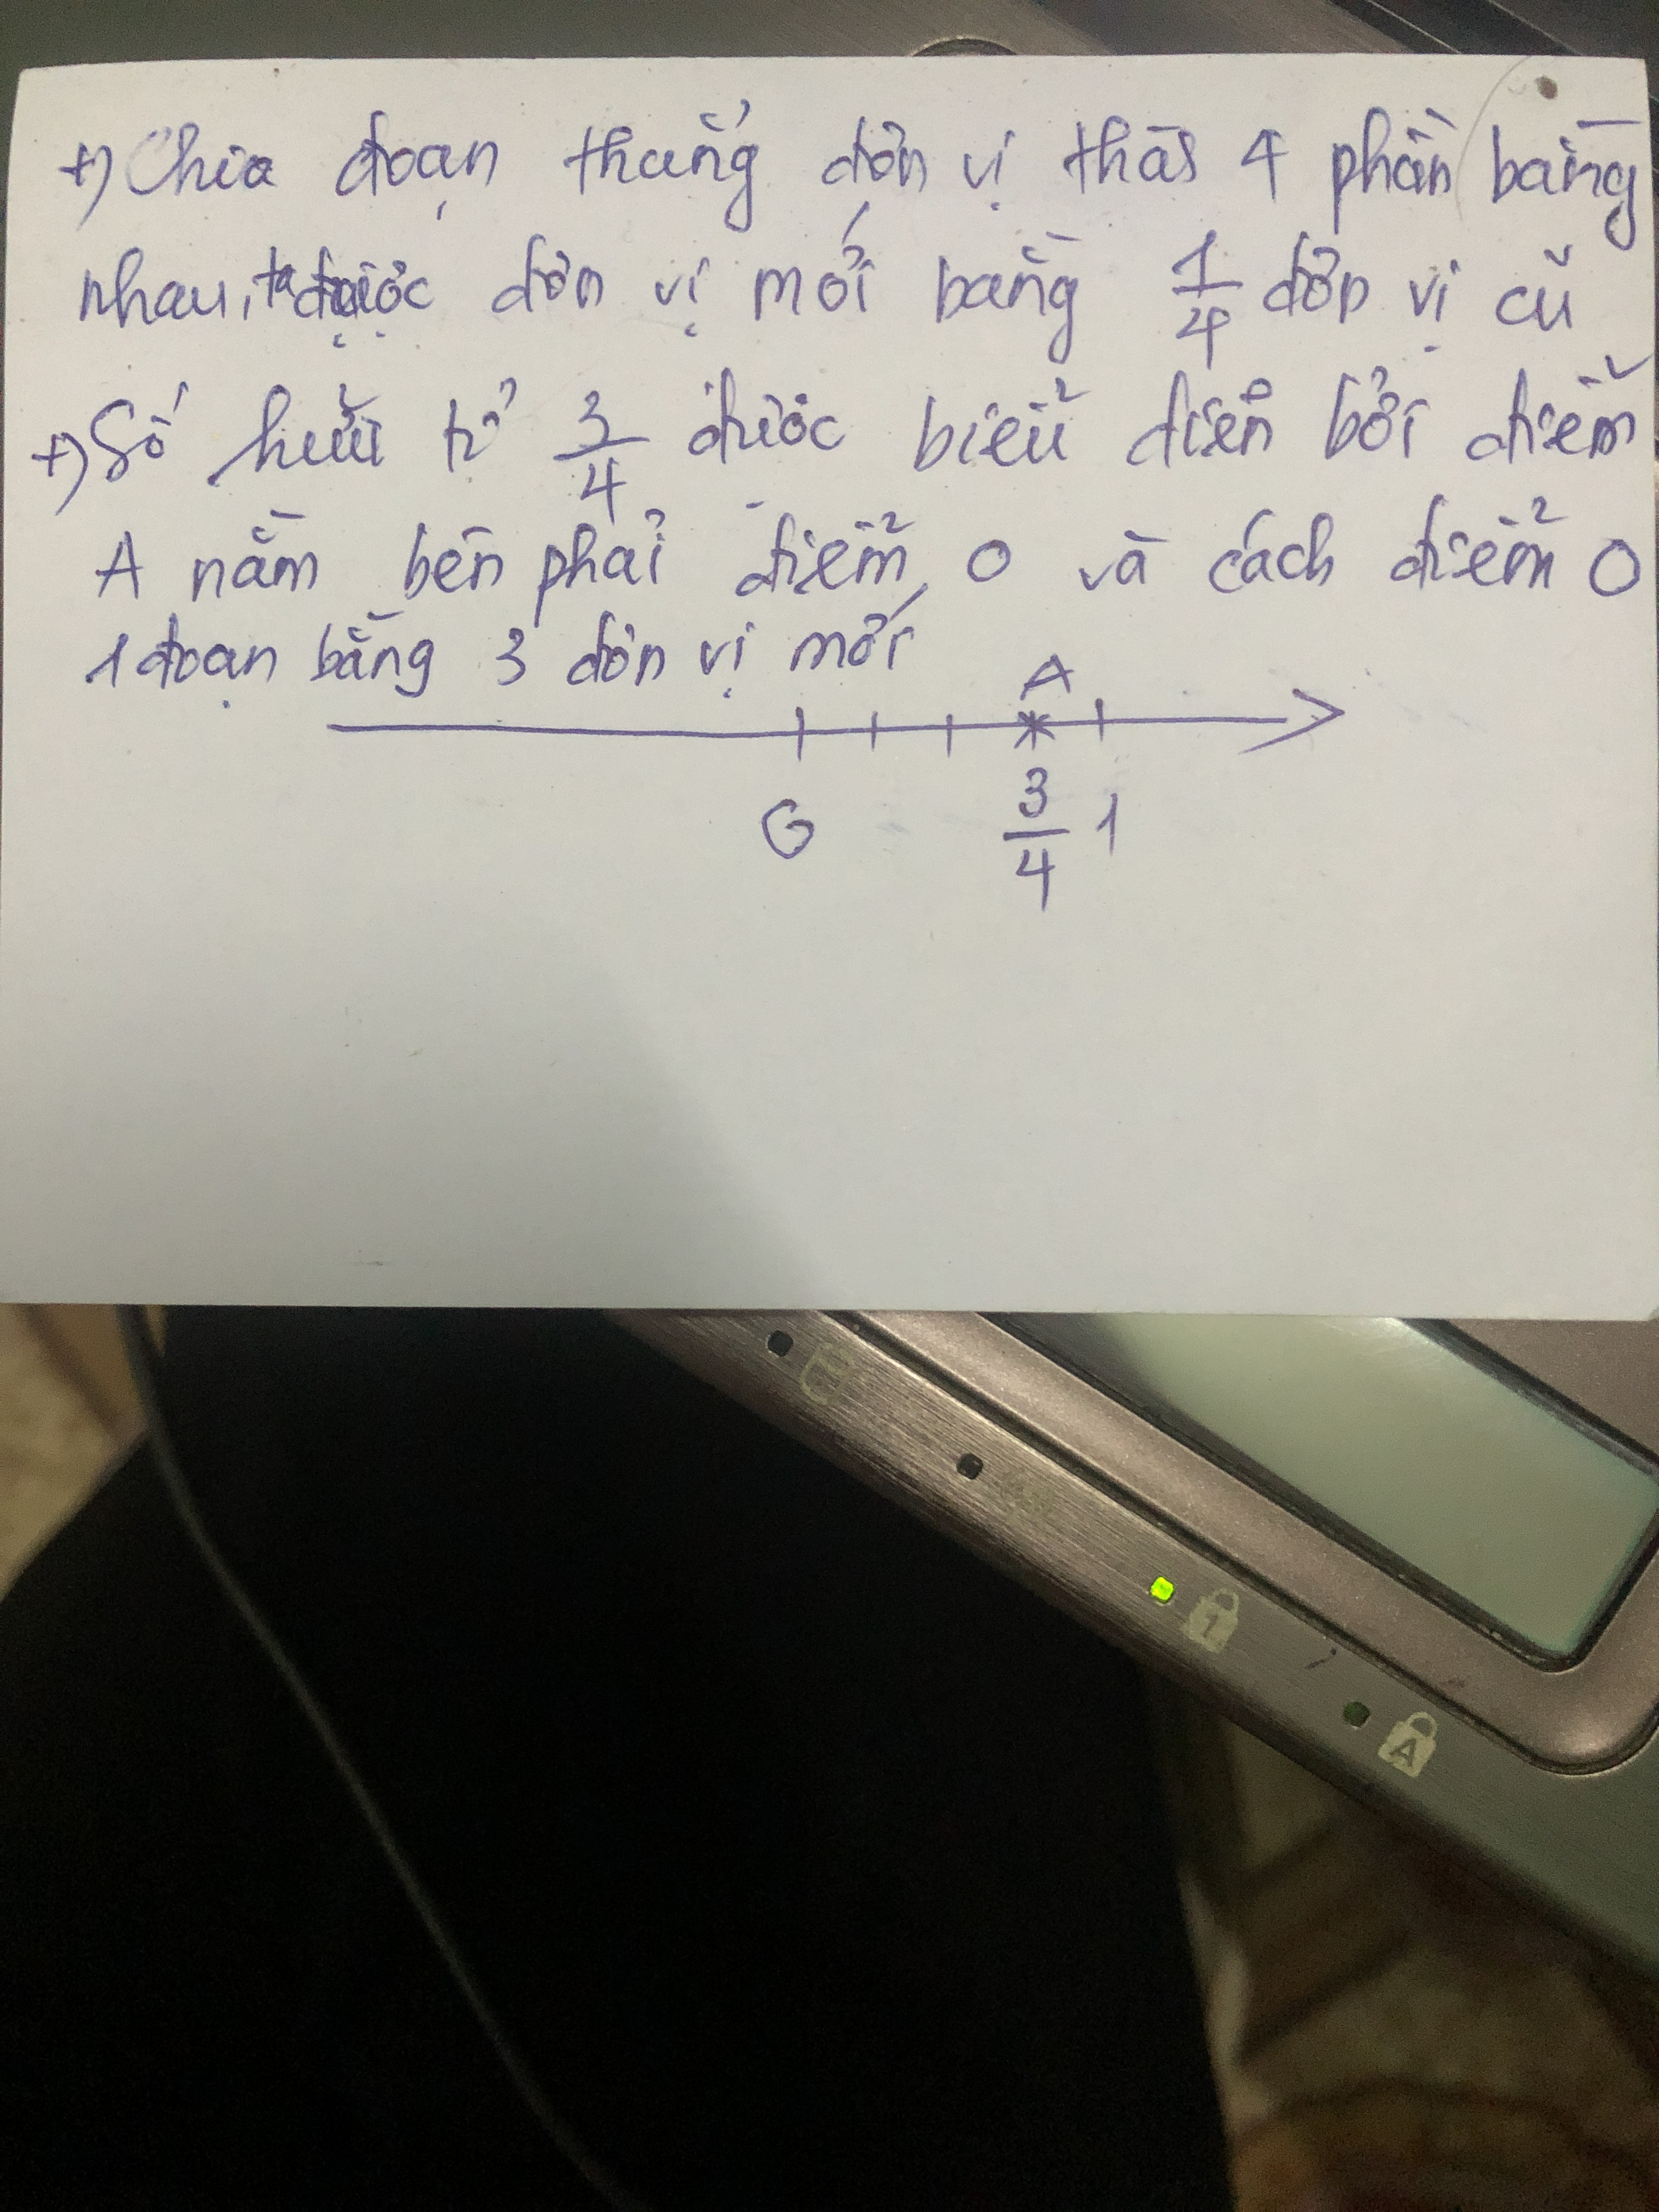 +) Chia đoạn thẳng đơn vị thành 4 phần bằng
nhau, ta được đơn vị mới bằng 1/4 đơn vị cũ
+) Số hữu tỉ 3/4 được biểu diễn bởi điểm
A nằm bên phải điểm O và cách điểm O
1 đoạn bằng 3 đơn vị mới
A
O 3/4 1
1
A